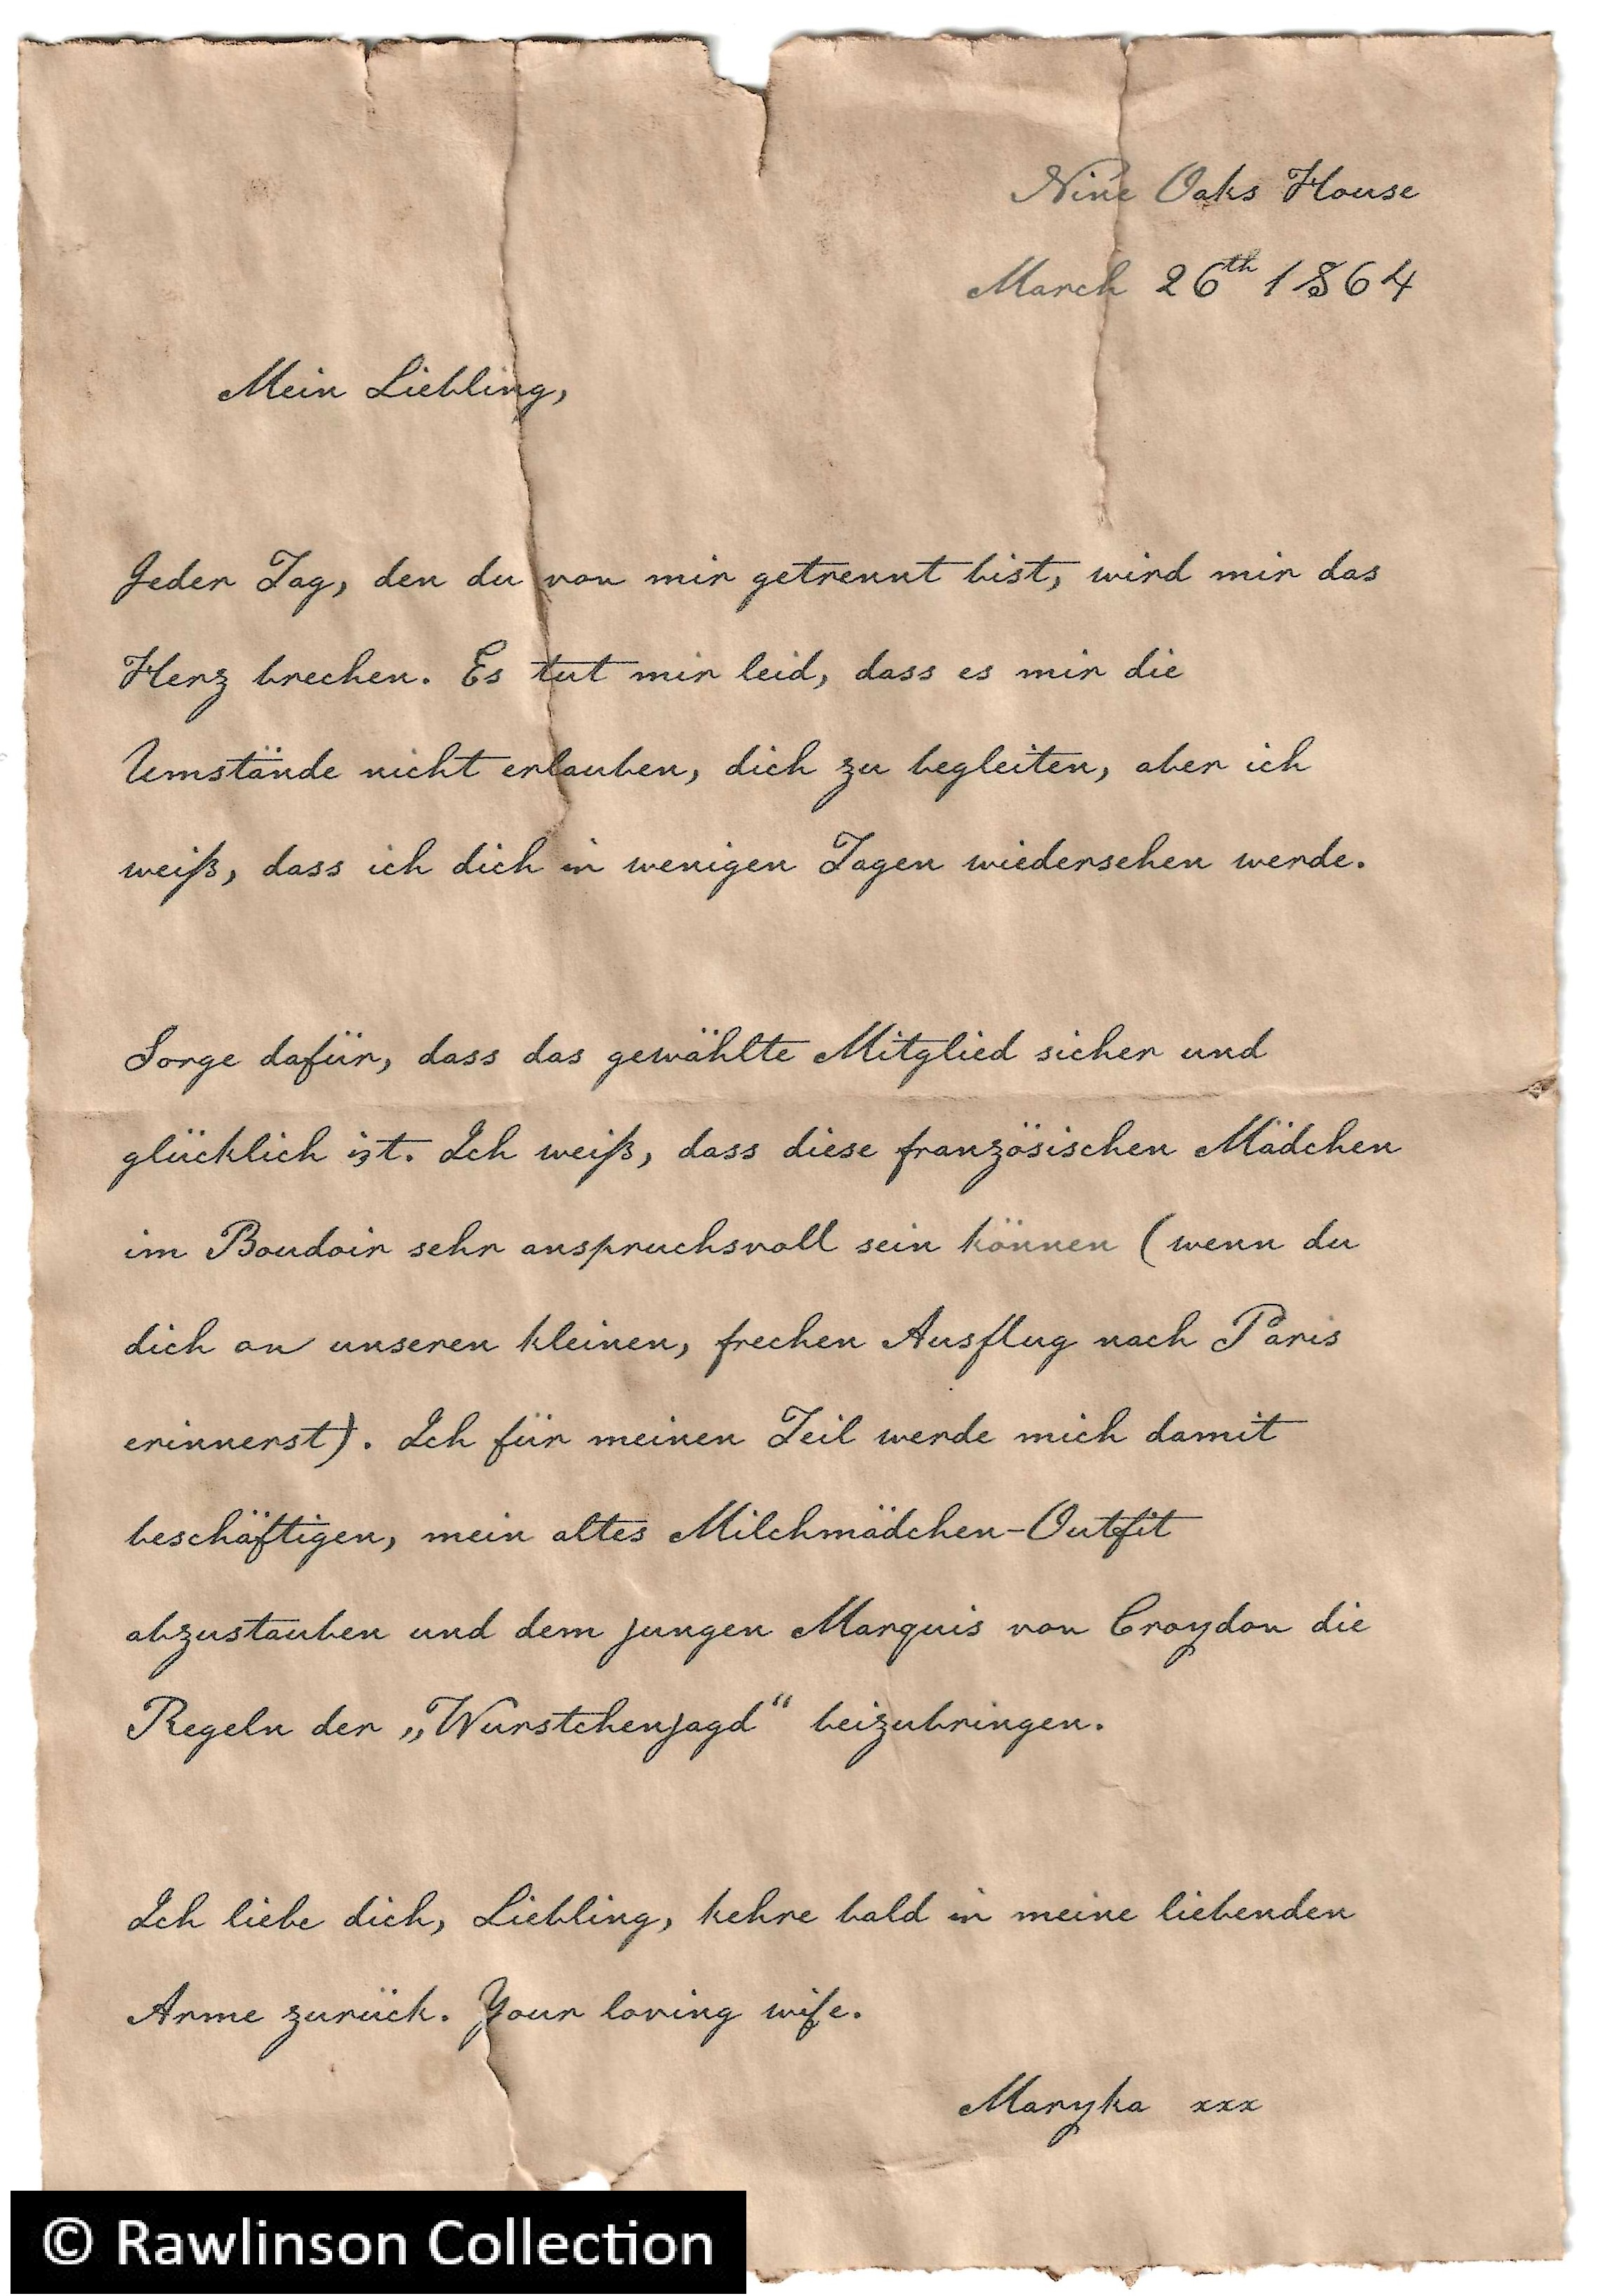 Nine Oaks House
March 26th 1864
Mein Liebling,
Jeder Tag, den du von mir getrennt bist, wird mir das
Herz brechen. Es tut mir leid, dass es mir die
Umstände nicht erlauben, dich zu begleiten, aber ich
weiß, dass ich dich in wenigen Tagen wiedersehen werde.
Sorge dafür, dass das gewählte Mitglied sicher und
glücklich ist. Ich weiß, dass diese französischen Mädchen
im Boudoir sehr anspruchsvoll sein können (wenn du
dich an unseren kleinen, frechen Ausflug nach Paris
erinnerst). Ich für meinen Teil werde mich damit
beschäftigen, mein altes Milchmädchen-Outfit
abzustauben und dem jungen Marquis von Croydon die
Regeln der „Wurstchenjagd“ beizubringen.
Ich liebe dich, Liebling, kehre bald in meine liebenden
Arme zurück. Your loving wife.
Maryka xxx
© Rawlinson Collection